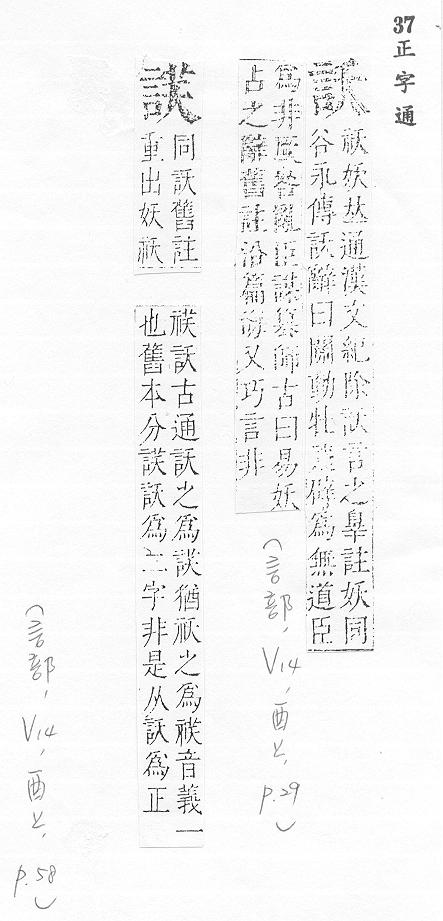 37 正字通
訞
祅妖𠀤通漢文紀除訞言之辠註妖同
谷永傳訞辭曰關動牡飛辟為無道臣
為非厥咎亂臣謀篡師古曰易妖
占之辭舊註沿篇海又巧言非
(言部, V14, 酉上, p.29)
同訞舊註
重出妖祅
䄏訞古通訞之為猶祅之為䄏音義一
也舊本分訞為二字非是从訞為正
(言部, V14, 酉上, p.58)